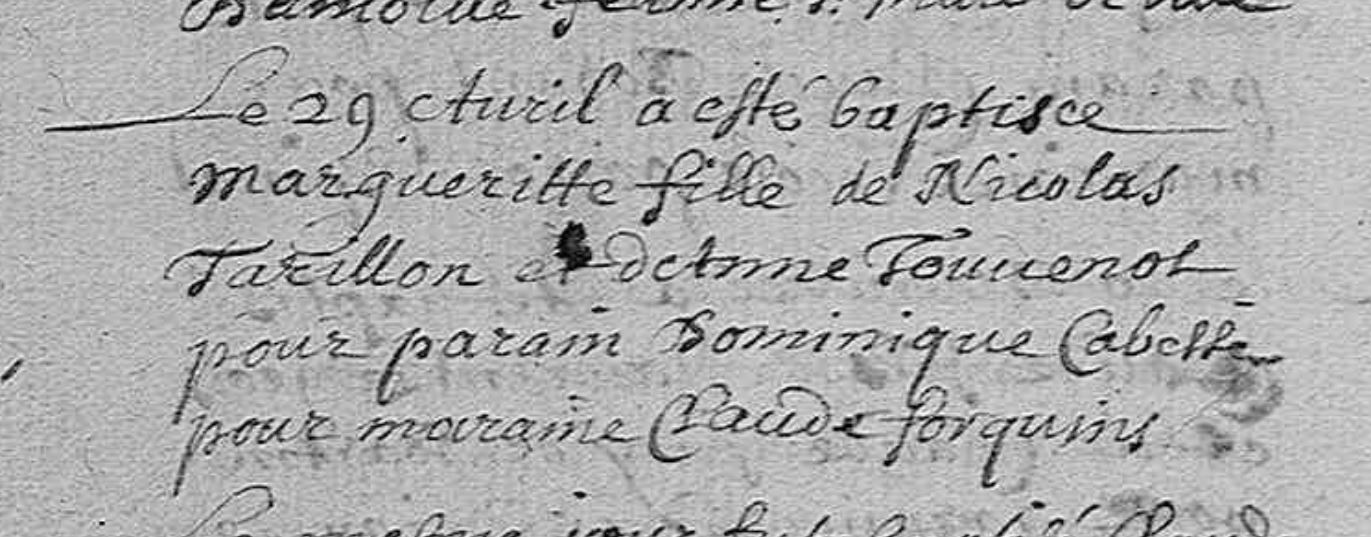 femme
Le 29 Auril a esté baptisee
margueritte fille de Nicolas
Tarillon et de Anne Touuenot
pour parain Dominique Cabesse
pour maraine Claude forquins
jour fut